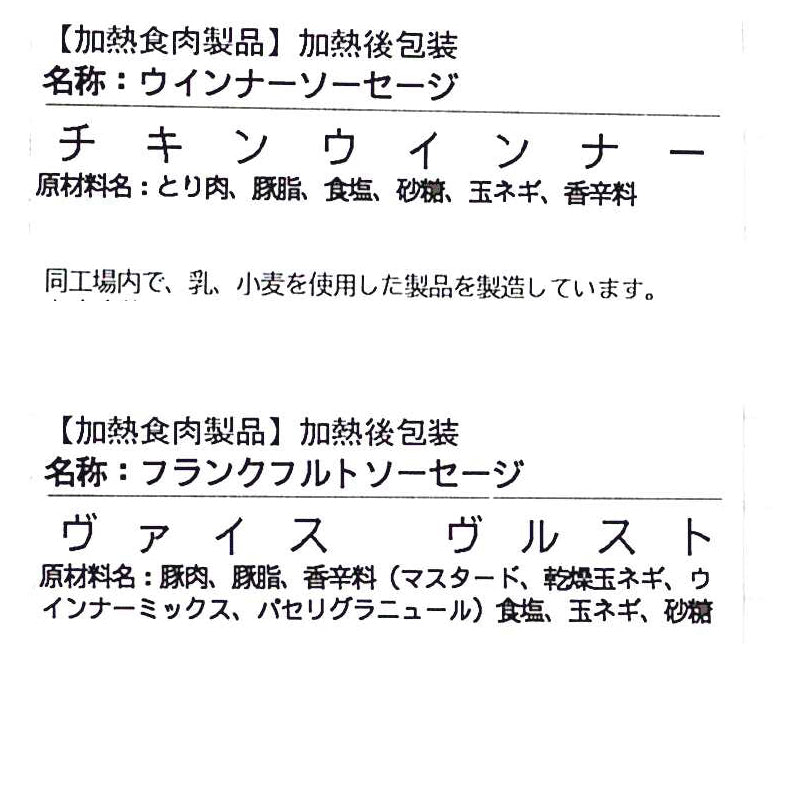 【加熱食肉製品】加熱後包装
名称：ウインナーソーセージ
チキンウインナー
原材料名：とり肉、豚脂、食塩、砂糖、玉ネギ、香辛料
同工場内で、乳、小麦を使用した製品を製造しています。
【加熱食肉製品】加熱後包装
名称：フランクフルトソーセージ
ヴァイス ヴルスト
原材料名：豚肉、豚脂、香辛料（マスタード、乾燥玉ネギ、ウ
インナーミックス、パセリグラニュール）食塩、玉ネギ、砂糖